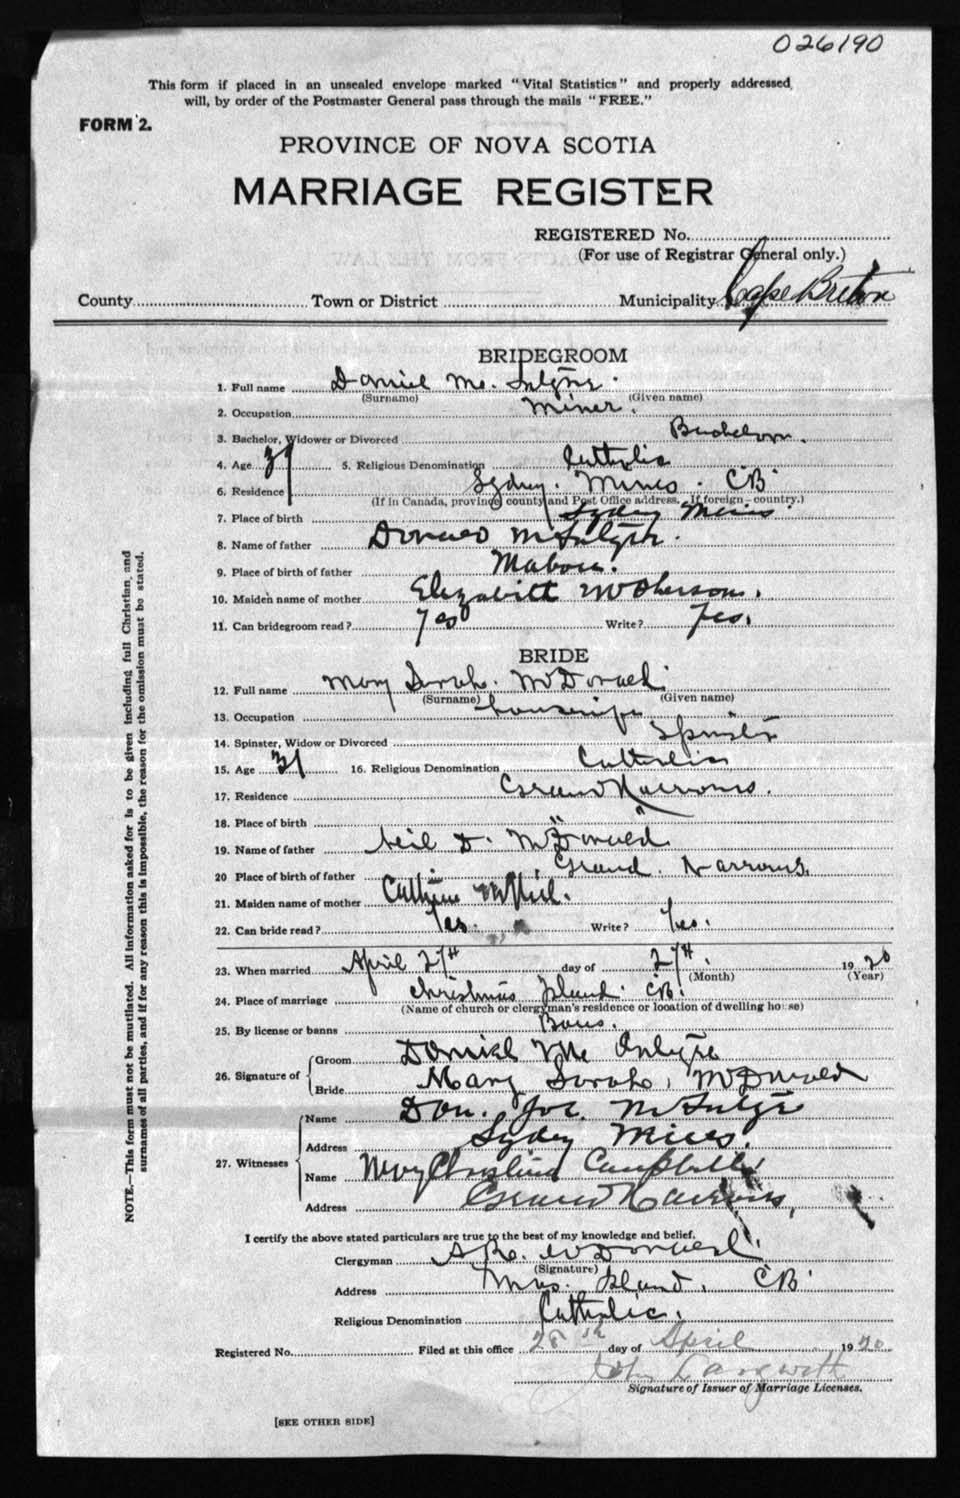 026190
This form if placed in an unsealed envelope marked "Vital Statistics" and properly addressed,
will, by order of the Postmaster General pass through the mails "FREE."
FORM 2.
PROVINCE OF NOVA SCOTIA
MARRIAGE REGISTER
REGISTERED No.
(For use of Registrar General only.)
County Town or District Municipality Cape Breton
BRIDEGROOM
1. Full name Daniel Mc. Intyre.
(Surname) (Given name)
2. Occupation Miner.
3. Bachelor, Widower or Divorced Bachelor.
4. Age 39 5. Religious Denomination Catholic
6. Residence Sydney. Mines. C.B.
(If in Canada, province county and Post Office address. If foreign—country.)
7. Place of birth Sydney Mines.
8. Name of father Donald McIntyre.
9. Place of birth of father Mabou.
10. Maiden name of mother Elizabeth McPherson.
11. Can bridegroom read? Yes Write? Yes.
BRIDE
12. Full name Mary Sarah. McDonald.
(Surname) (Given name)
13. Occupation housewife
14. Spinster, Widow or Divorced Spinster
15. Age 31 16. Religious Denomination Catholic
17. Residence Grand Narrows.
18. Place of birth " "
19. Name of father Neil D. McDonald.
20 Place of birth of father Grand. Narrows.
21. Maiden name of mother McNeil.
22. Can bride read? Yes. Write? Yes.
23. When married April 27th day of 27th. 1920
(Month) (Year)
24. Place of marriage Christmas Island. C.B.
(Name of church or clergyman's residence or location of dwelling house)
25. By license or banns Bans.
26. Signature of
Groom Daniel Mc Intyre
Bride Mary Sarah. McDonald
27. Witnesses
Name Dan. Joe. McIntyre
Address Sydney Mines.
Name Mary Christina Campbell
Address Grand Narrows,
I certify the above stated particulars are true to the best of my knowledge and belief.
Clergyman McDonald
(Signature)
Address Xmas. Island. C.B.
Religious Denomination Catholic.
Registered No. Filed at this office 28th day of April 1920
John
Signature of Issuer of Marriage Licenses.
[SEE OTHER SIDE]
NOTE.—This form must not be mutilated. All information asked for is to be given including full Christian, and
surnames of all parties, and if for any reason this is impossible, the reason for the omission must be stated.